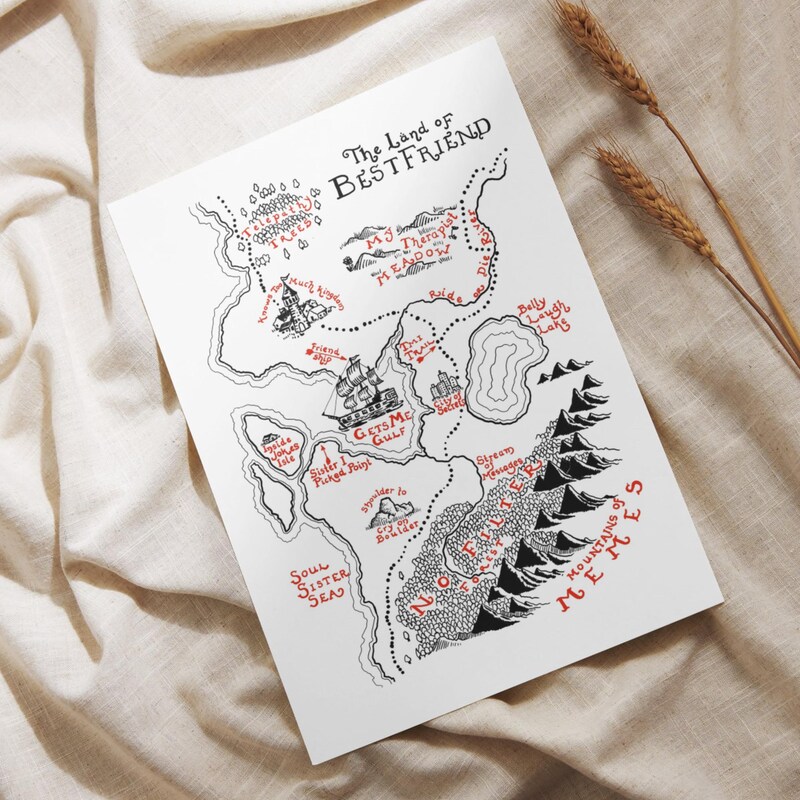 The Land of
BESTFRIEND
Telepathy
TREES
My Therapist
MEADOW
Knows Too Much Kingdom
Ride or Die River
Belly
Laugh
Lake
Friend
ship
TMI
TRAIL
City of
Secrets
GETS ME
GULF
Inside
Jokes
Isle
Sister I
Picked Point
Stream
of
Messages
Shoulder to
Cry on
Boulder
NO FILTER
FOREST
MOUNTAINS OF
MEMES
SOUL
SISTER
SEA